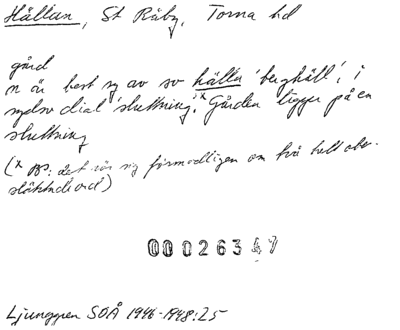 Hällan, St Råby, Torna hd
gård
n är best sg av sv hälla 'berghäll', i
sydsv dial 'sluttning'.x Gården ligger på en
sluttning
(x OBS: det rör sig förmodligen om två helt obe-
släktade ord)
00026347
Ljunggren SOÅ 1946-1948:25